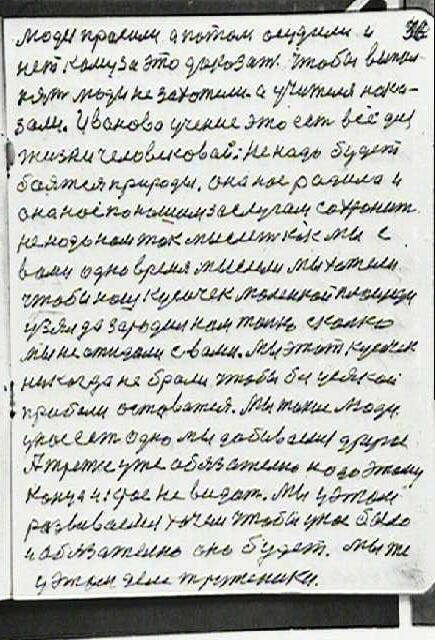 люди просили а потом осудили и
нет кому за это доказат. Чтобы выпол-
нят люди не захотели. а учителя нака-
зали. Иваново учение это ест всё для
жизни человиковай: Не надо будет
боятся природы. она нас радила и
она нас по нашим заслугам сохранит.
не надо нам так мыслет как мы с
вами одно время мыслели мы хотели
чтобы наш кусочек маленкой площади
узял да зародил нам толко сколко
мы не ожидали с вами. Мы этот кусочек
никогда не брали чтобы без усякой
прибали оставатся. Мы такие люди
у нас ест одно мы добиваемся другое
А третже уже обязателно надо этому
конца и края не видат. Мы у этом
развиваемся хочем чтобы у нас было
и обязателно оно будет. Мы же
у этом деле труженики.